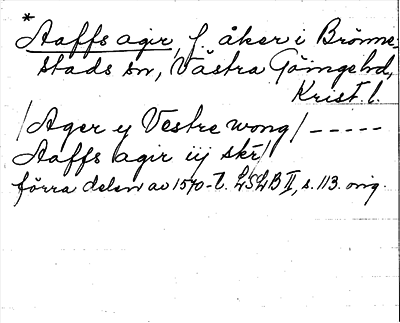 * Aaffs agir, f. åker i Brönne-
stads sn, Västra Göinge hd,
Krist. l.
/Ager y Vestre wong/ -----
Aaffs agir iij skr/
förra delen av 1570-t. LSLB II, s. 113. orig.